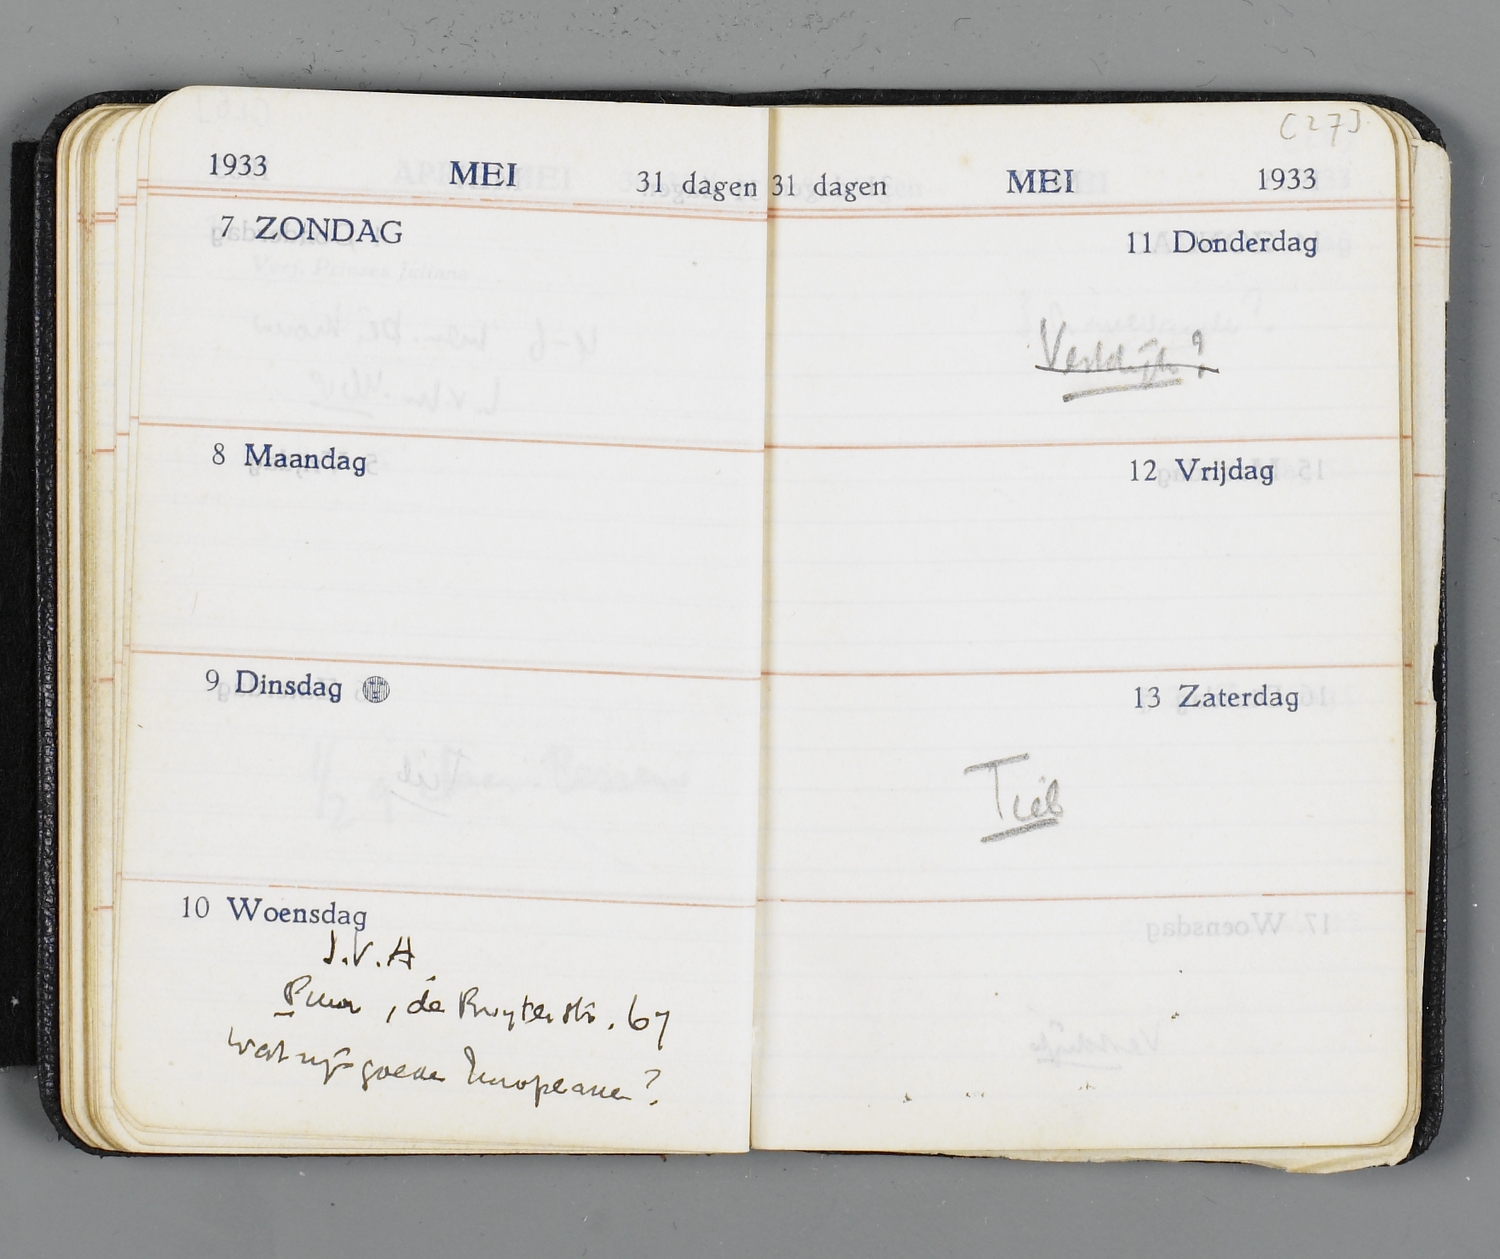 1933 MEI 31 dagen
7 ZONDAG
8 Maandag
9 Dinsdag
10 Woensdag
J.V.A
, de Ruyterstr. 67
wat zijn goede Europeanen?
[27]
31 dagen MEI 1933
11 Donderdag
Vestdijk?
12 Vrijdag
13 Zaterdag
Tiel